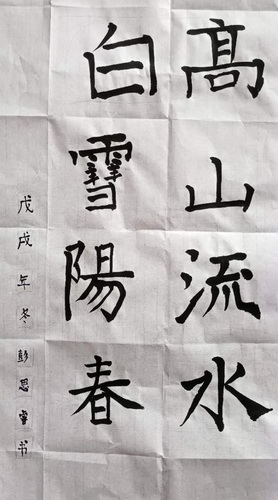 髙山流水
白雪陽春
戊戌年冬彭思睿书